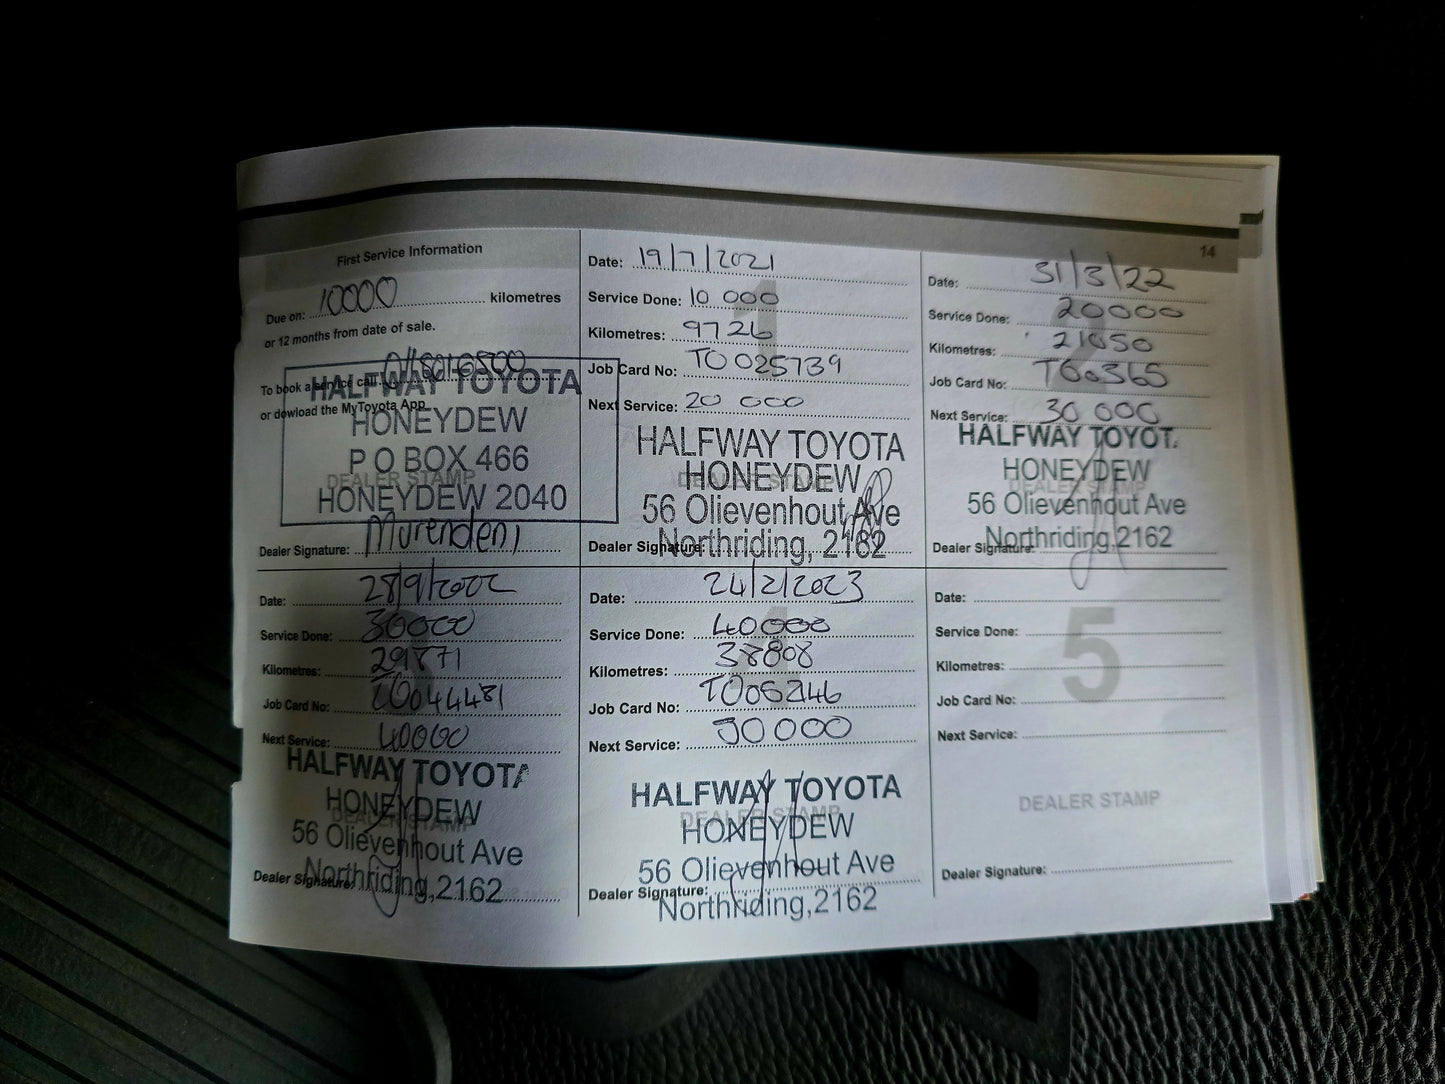 14
First Service Information
Due on: 10000 kilometres
or 12 months from date of sale.
To book a service call
or dowload the MyToyota App
HALFWAY TOYOTA
HONEYDEW
P O BOX 466
HONEYDEW 2040
DEALER STAMP
Dealer Signature: Murendeni
1
Date: 19/7/2021
Service Done: 10 000
Kilometres: 9726
Job Card No: TO025739
Next Service: 20 000
HALFWAY TOYOTA
HONEYDEW
DEALER STAMP
56 Olievenhout Ave
Northriding, 2162
Dealer Signature:
2
Date: 31/3/22
Service Done: 20000
Kilometres: 21050
Job Card No:
Next Service: 30 000
HALFWAY TOYOT
HONEYDEW
DEALER STAMP
56 Olievenhout Ave
Northriding,2162
Dealer Signature:
Date: 28/9/2022
Service Done: 30000
Kilometres: 29871
Job Card No:
Next Service: 40000
HALFWAY TOYOTA
HONEYDEW
DEALER STAMP
56 Olievenhout Ave
Northriding,2162
Dealer Signature:
4
Date: 24/2/2023
Service Done: 40000
Kilometres: 38808
Job Card No:
Next Service:
HALFWAY TOYOTA
HONEYDEW
DEALER STAMP
56 Olievenhout Ave
Northriding,2162
Dealer Signature:
5
Date:
Service Done:
Kilometres:
Job Card No:
Next Service:
DEALER STAMP
Dealer Signature: